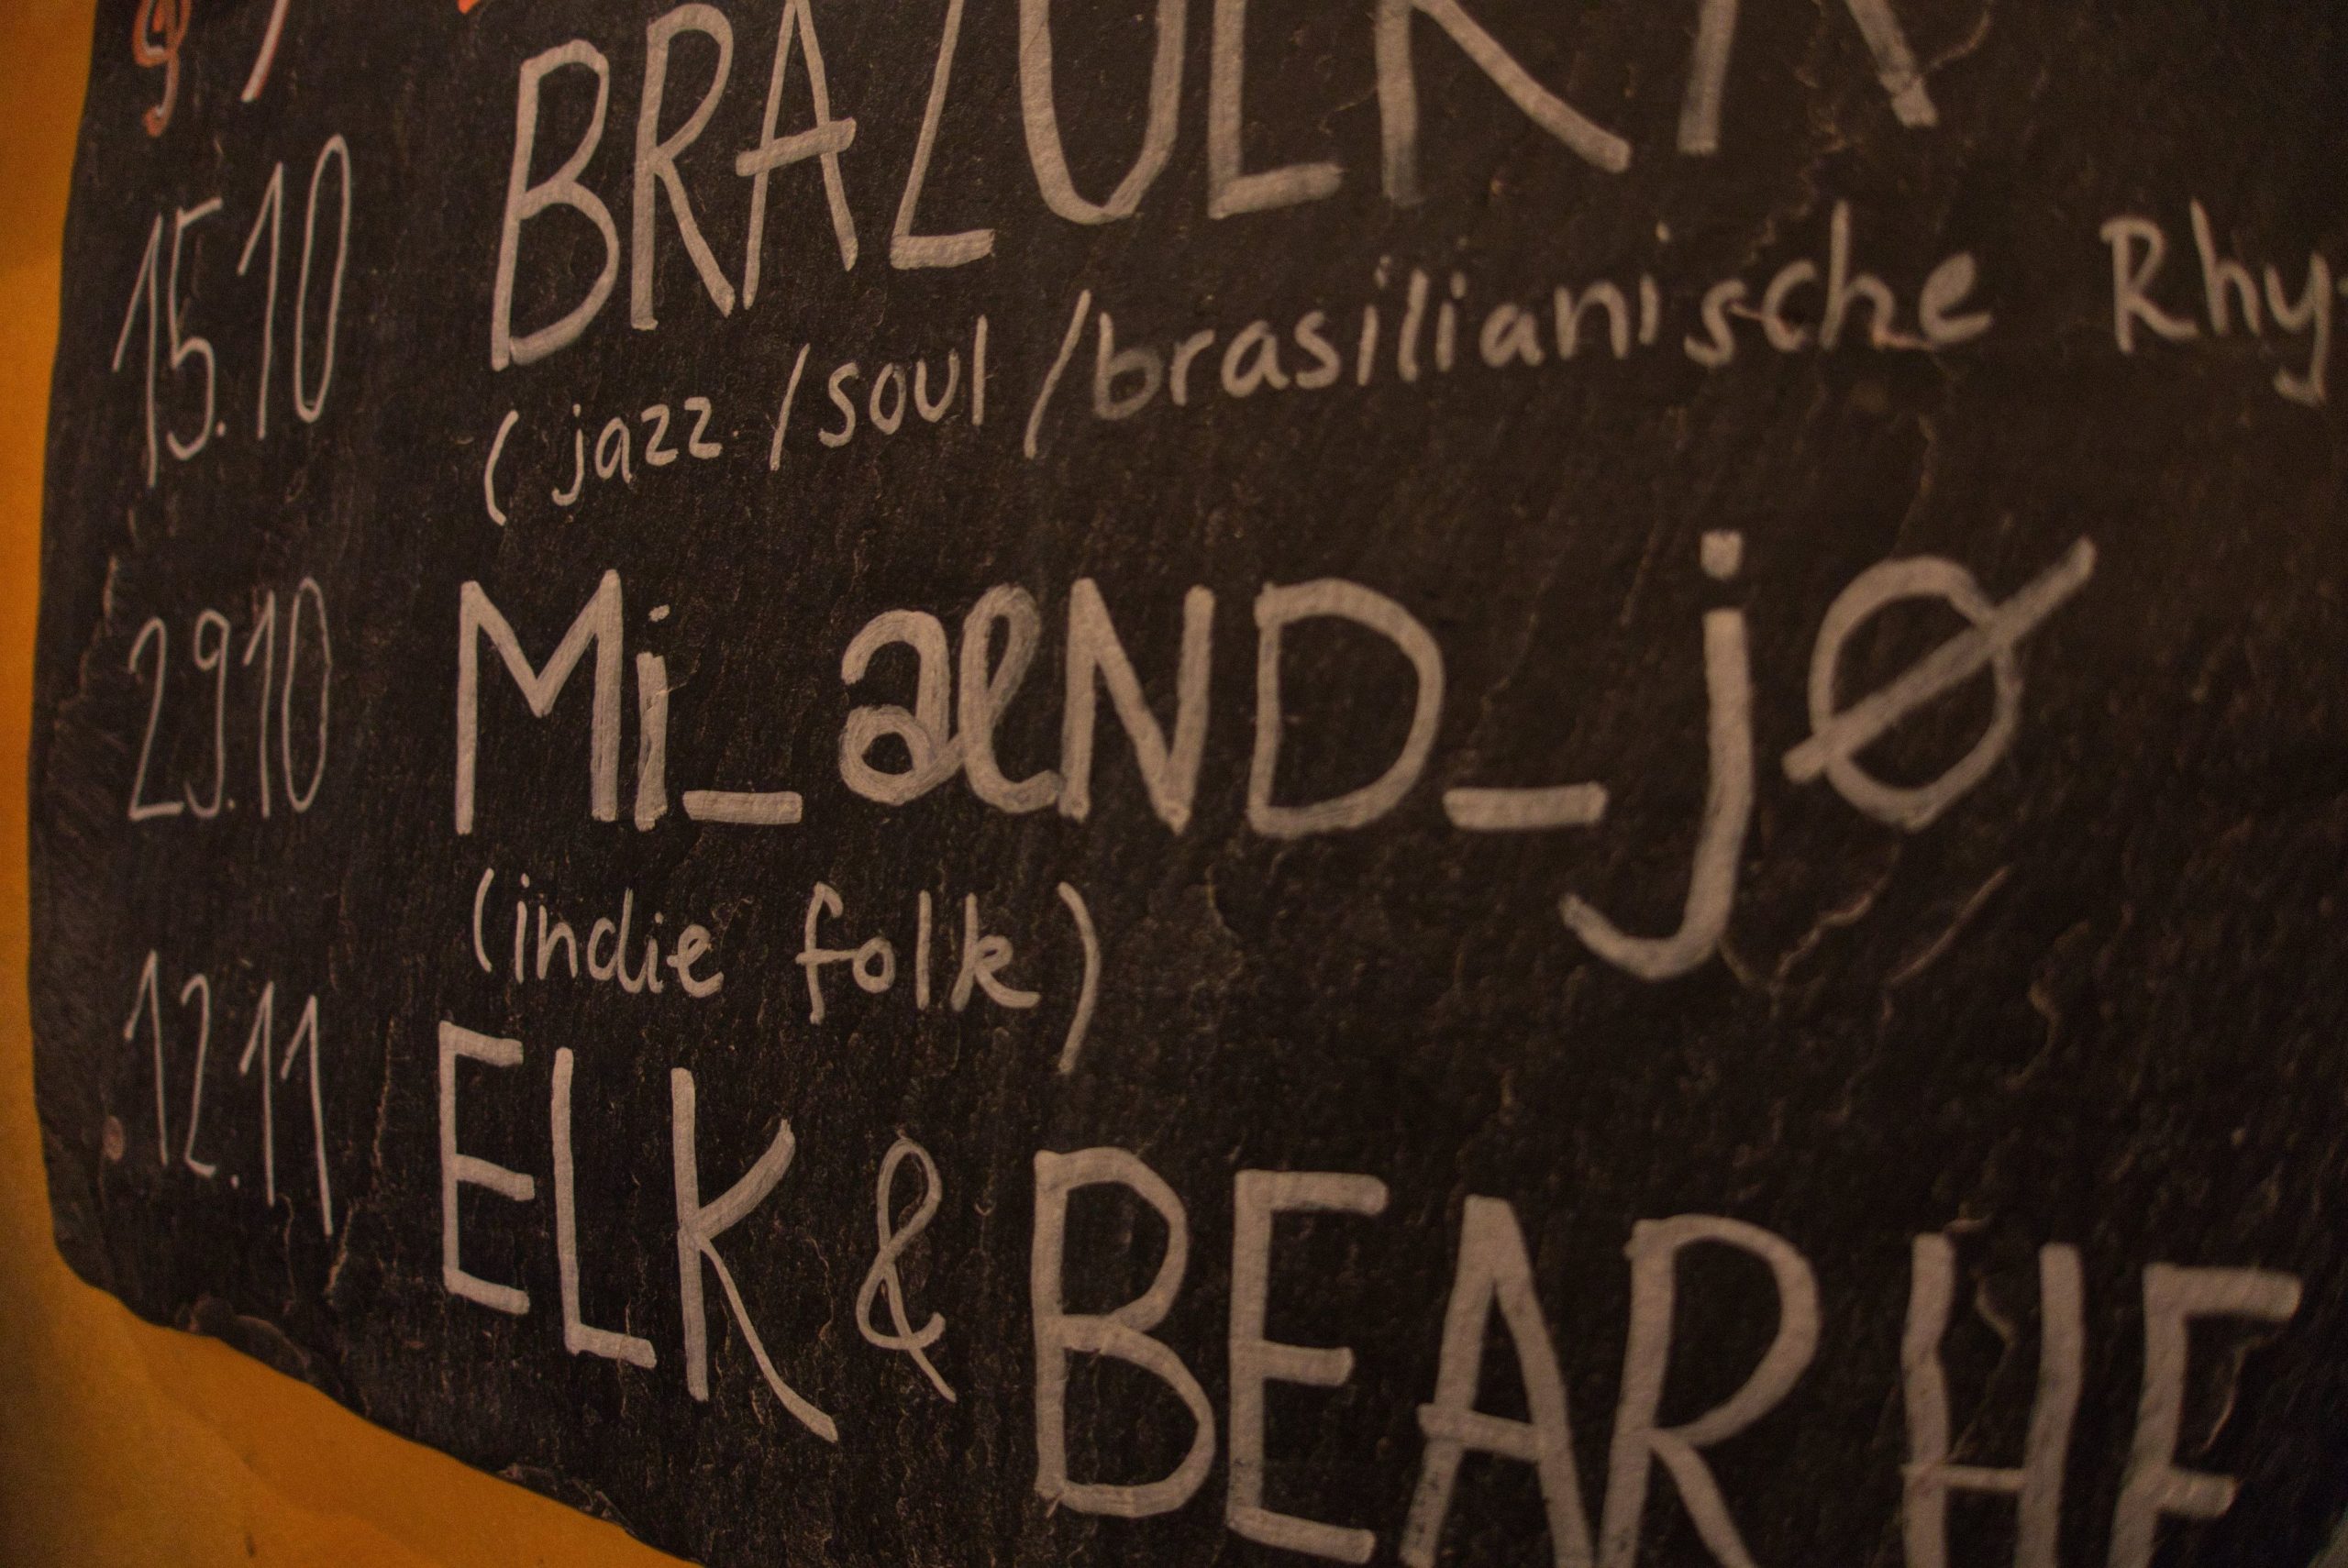 15.10
(jazz/soul/brasilianische Rhy-
29.10 Mi_aeND_jø
(indie folk)
12.11 ELK & BEAR HE